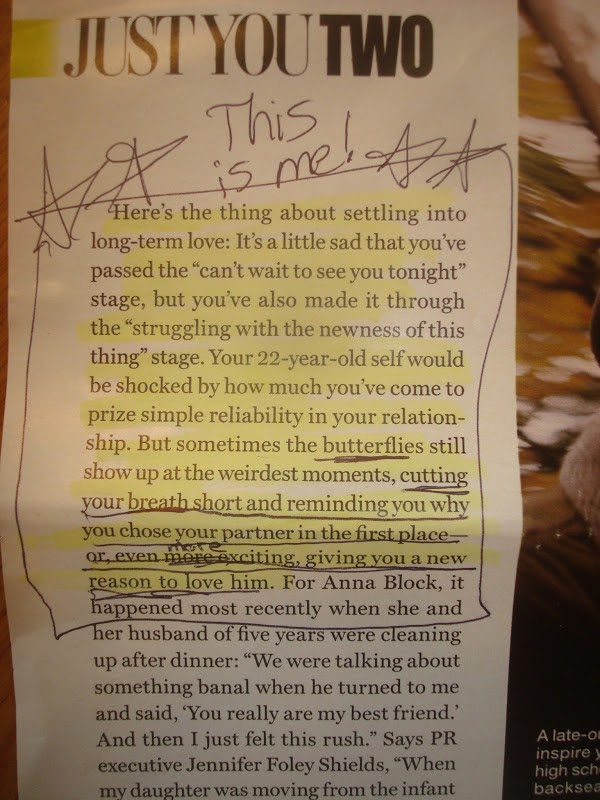 JUST YOU TWO
This
is me!
Here's the thing about settling into
long-term love: It's a little sad that you've
passed the "can't wait to see you tonight"
stage, but you've also made it through
the "struggling with the newness of this
thing" stage. Your 22-year-old self would
be shocked by how much you've come to
prize simple reliability in your relation-
ship. But sometimes the butterflies still
show up at the weirdest moments, cutting
your breath short and reminding you why
you chose your partner in the first place—
more
or, even more exciting, giving you a new
reason to love him. For Anna Block, it
happened most recently when she and
her husband of five years were cleaning
up after dinner: "We were talking about
something banal when he turned to me
and said, 'You really are my best friend.'
And then I just felt this rush." Says PR
executive Jennifer Foley Shields, "When
my daughter was moving from the infant
A late-
inspire
high sch
backsea